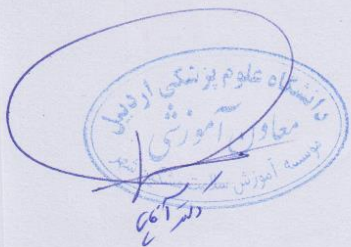 دانشگاه علوم پزشکی اردبیل
معاون آموزشی
موسسه آموزش سلامت شهر
دکتر آقایی